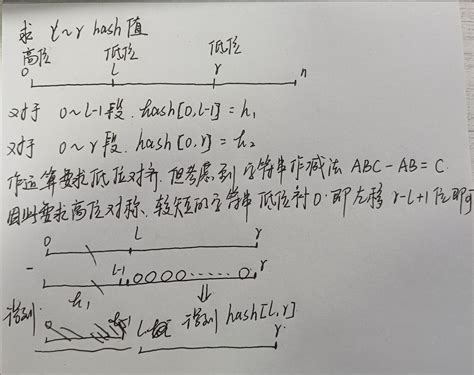 求 l~r hash 值
高位 低位 低位
0 L r n
对于 0~L-1段. hash[0,L-1] = h₁
对于 0~r 段. hash[0,r] = h₂
作运算要求低位对齐. 但考虑到 字符串作减法 ABC-AB=C.
因此要求高位对称、较短的字符串 低位补0. 即左移 r-L+1 位即可
0 L r
- L-1 0000......0 r
h₁
⇓
得到 得到 hash[L,r]
0 r.